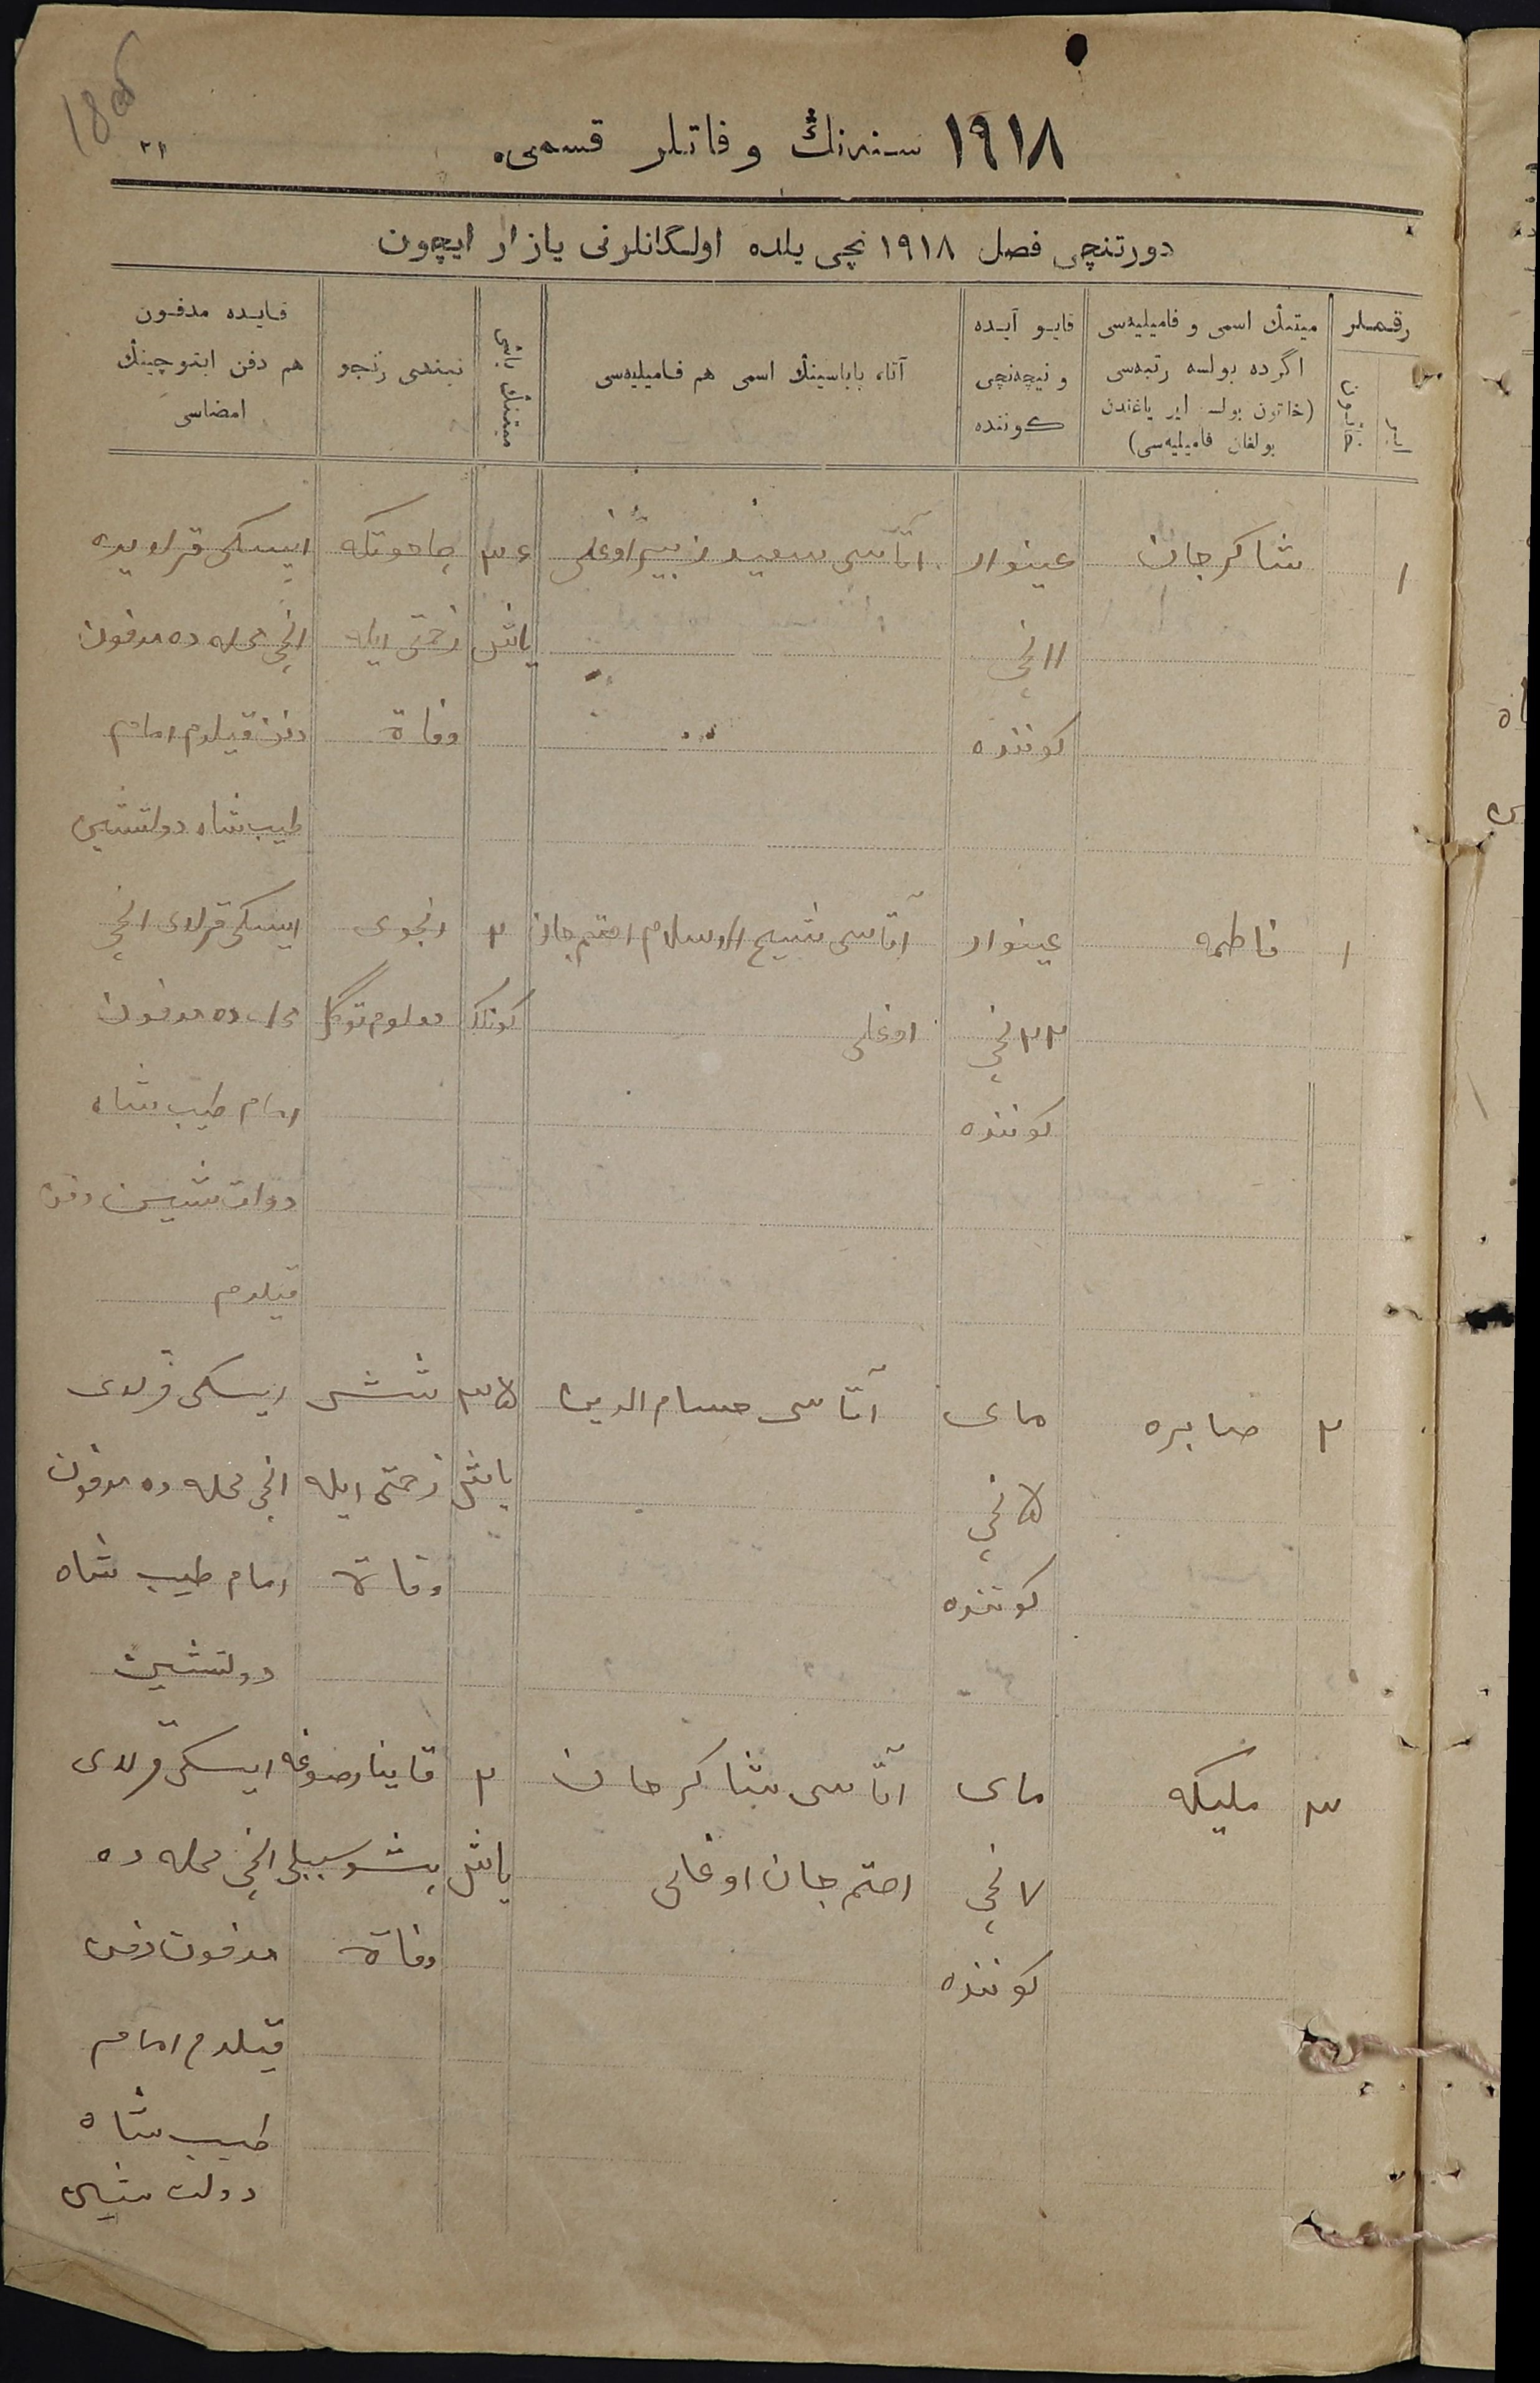 180
٢١
١٩١٨ سنه‌نڭ وفاتلر قسمی.
دورتنچی فصل ١٩١٨ نچی یلده اولگانلرنی یازار ایچون
رقملر
میتنڭ اسمی و فامیلیه‌سی
اگرده بولسه رتبه‌سی
(خاتون بولسه ایر یاغندن
بولغان فامیلیه‌سی)
قایو آیده
و نیچه‌نچی
كوننده
آتا، باباسینڭ اسمی هم فامیلیه‌سی
میتنڭ یاشی
نیندی رنجو
قایده مدفون
هم دفن ایتوچینڭ
امضاسی
١
شاكرجان
غینوار
١١ نچی
كوننده
آتاسی سعید اوغلی
٣٤
یاش
چاحوتكه
زحمتی ایله
وفاة
ایسكی
انچی محله ده مدفون
دفن قیلدم امام
طیب شاه دولتشین
١
فاطمه
غینوار
٢٢ نچی
كوننده
آتاسی شیخ الاسلام احتم جان
اوغلی
٢
كونلك
رنجوی
معلوم توگل
ایسكی قرلدی انچی
محله ده مدفون
امام طیب شاه
دولت شین دفن
قیلدم
٢
صابره
مای
٥ نچی
كوننده
آتاسی حسام الدین
٣٥
یاش
شش
زحمتی ایله
وفاة
ایسكی قرلدی
انچی محله ده مدفون
امام طیب شاه
دولتشین
٣
ملیكه
مای
٧ نچی
كوننده
آتاسی شاكرجان
احتم جان اوغلی
٢
یاش
وفاة
ایسكی قرلدی
انچی محله ده
مدفون دفن
قیلدم امام
طیب شاه
دولت شین